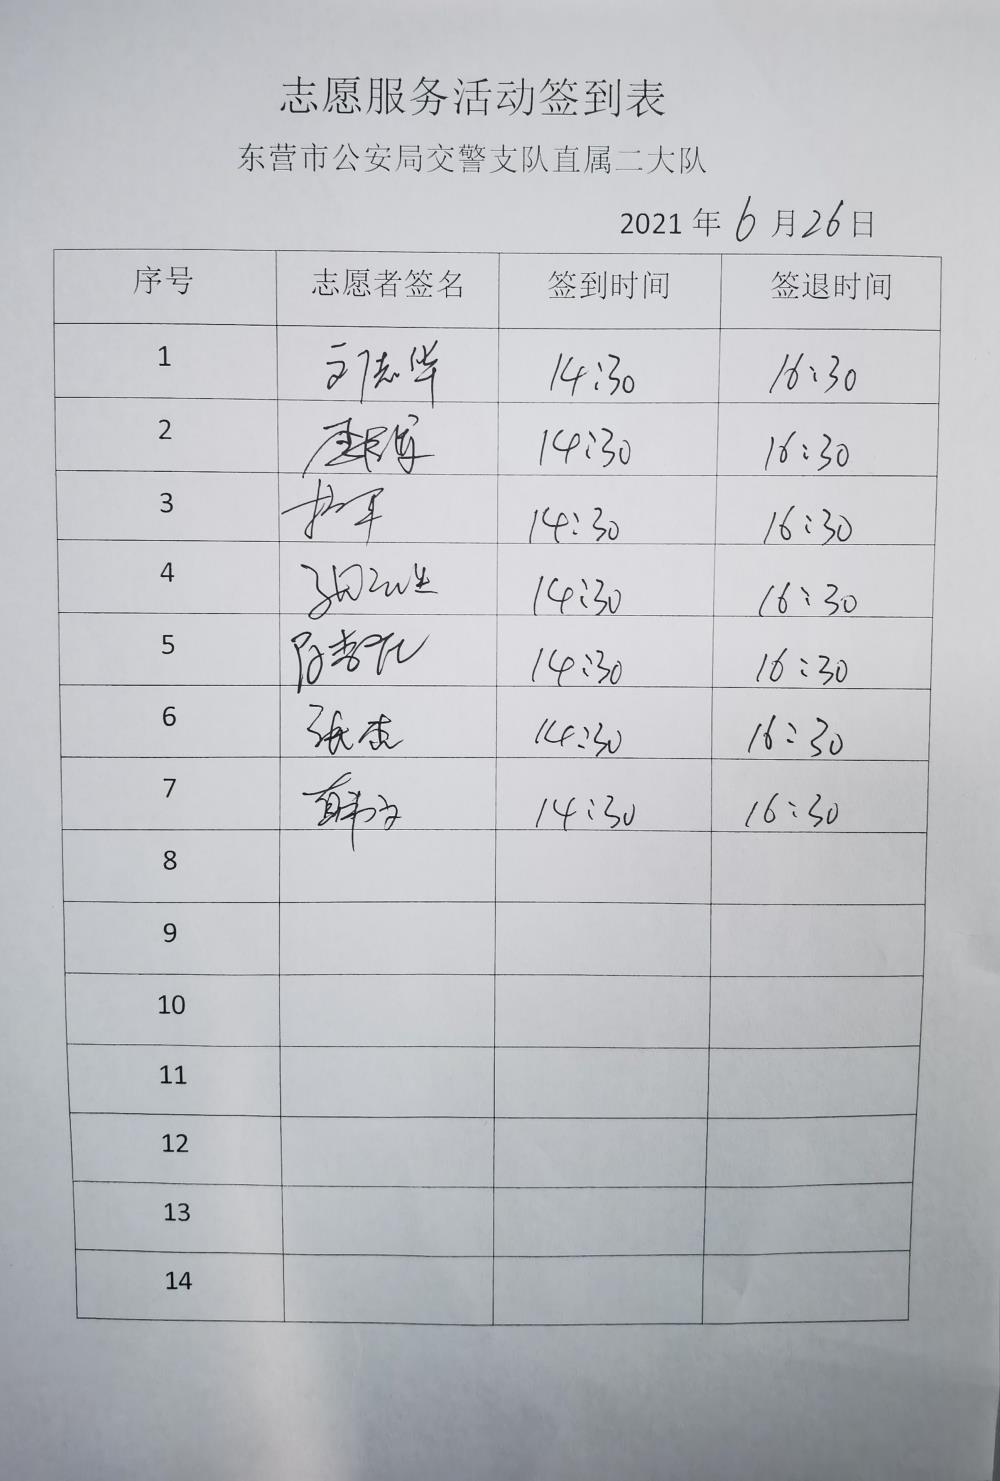 志愿服务活动签到表
东营市公安局交警支队直属二大队
2021 年 6 月 26 日
序号 志愿者签名 签到时间 签退时间
1 14:30 16:30
2 14:30 16:30
3 14:30 16:30
4 14:30 16:30
5 14:30 16:30
6 张杰 14:30 16:30
7 14:30 16:30
8
9
10
11
12
13
14